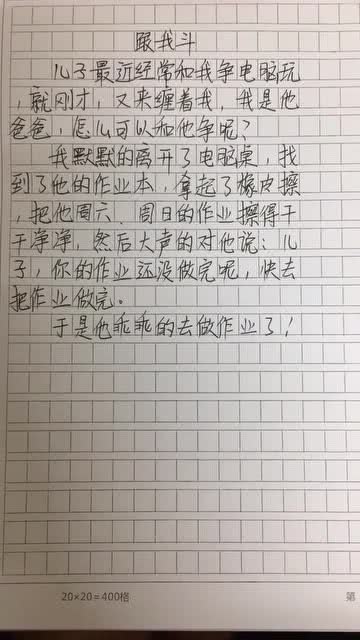 跟我斗
儿子最近经常和我争电脑玩
，就刚才，又来缠着我，我是他
爸爸，怎么可以和他争呢？
我默默的离开了电脑桌，找
到了他的作业本，拿起了橡皮擦
，把他周六、周日的作业擦得干
干净净，然后大声的对他说：儿
子，你的作业还没做完呢，快去
把作业做完。
于是他乖乖的去做作业了！
20×20=400格
第